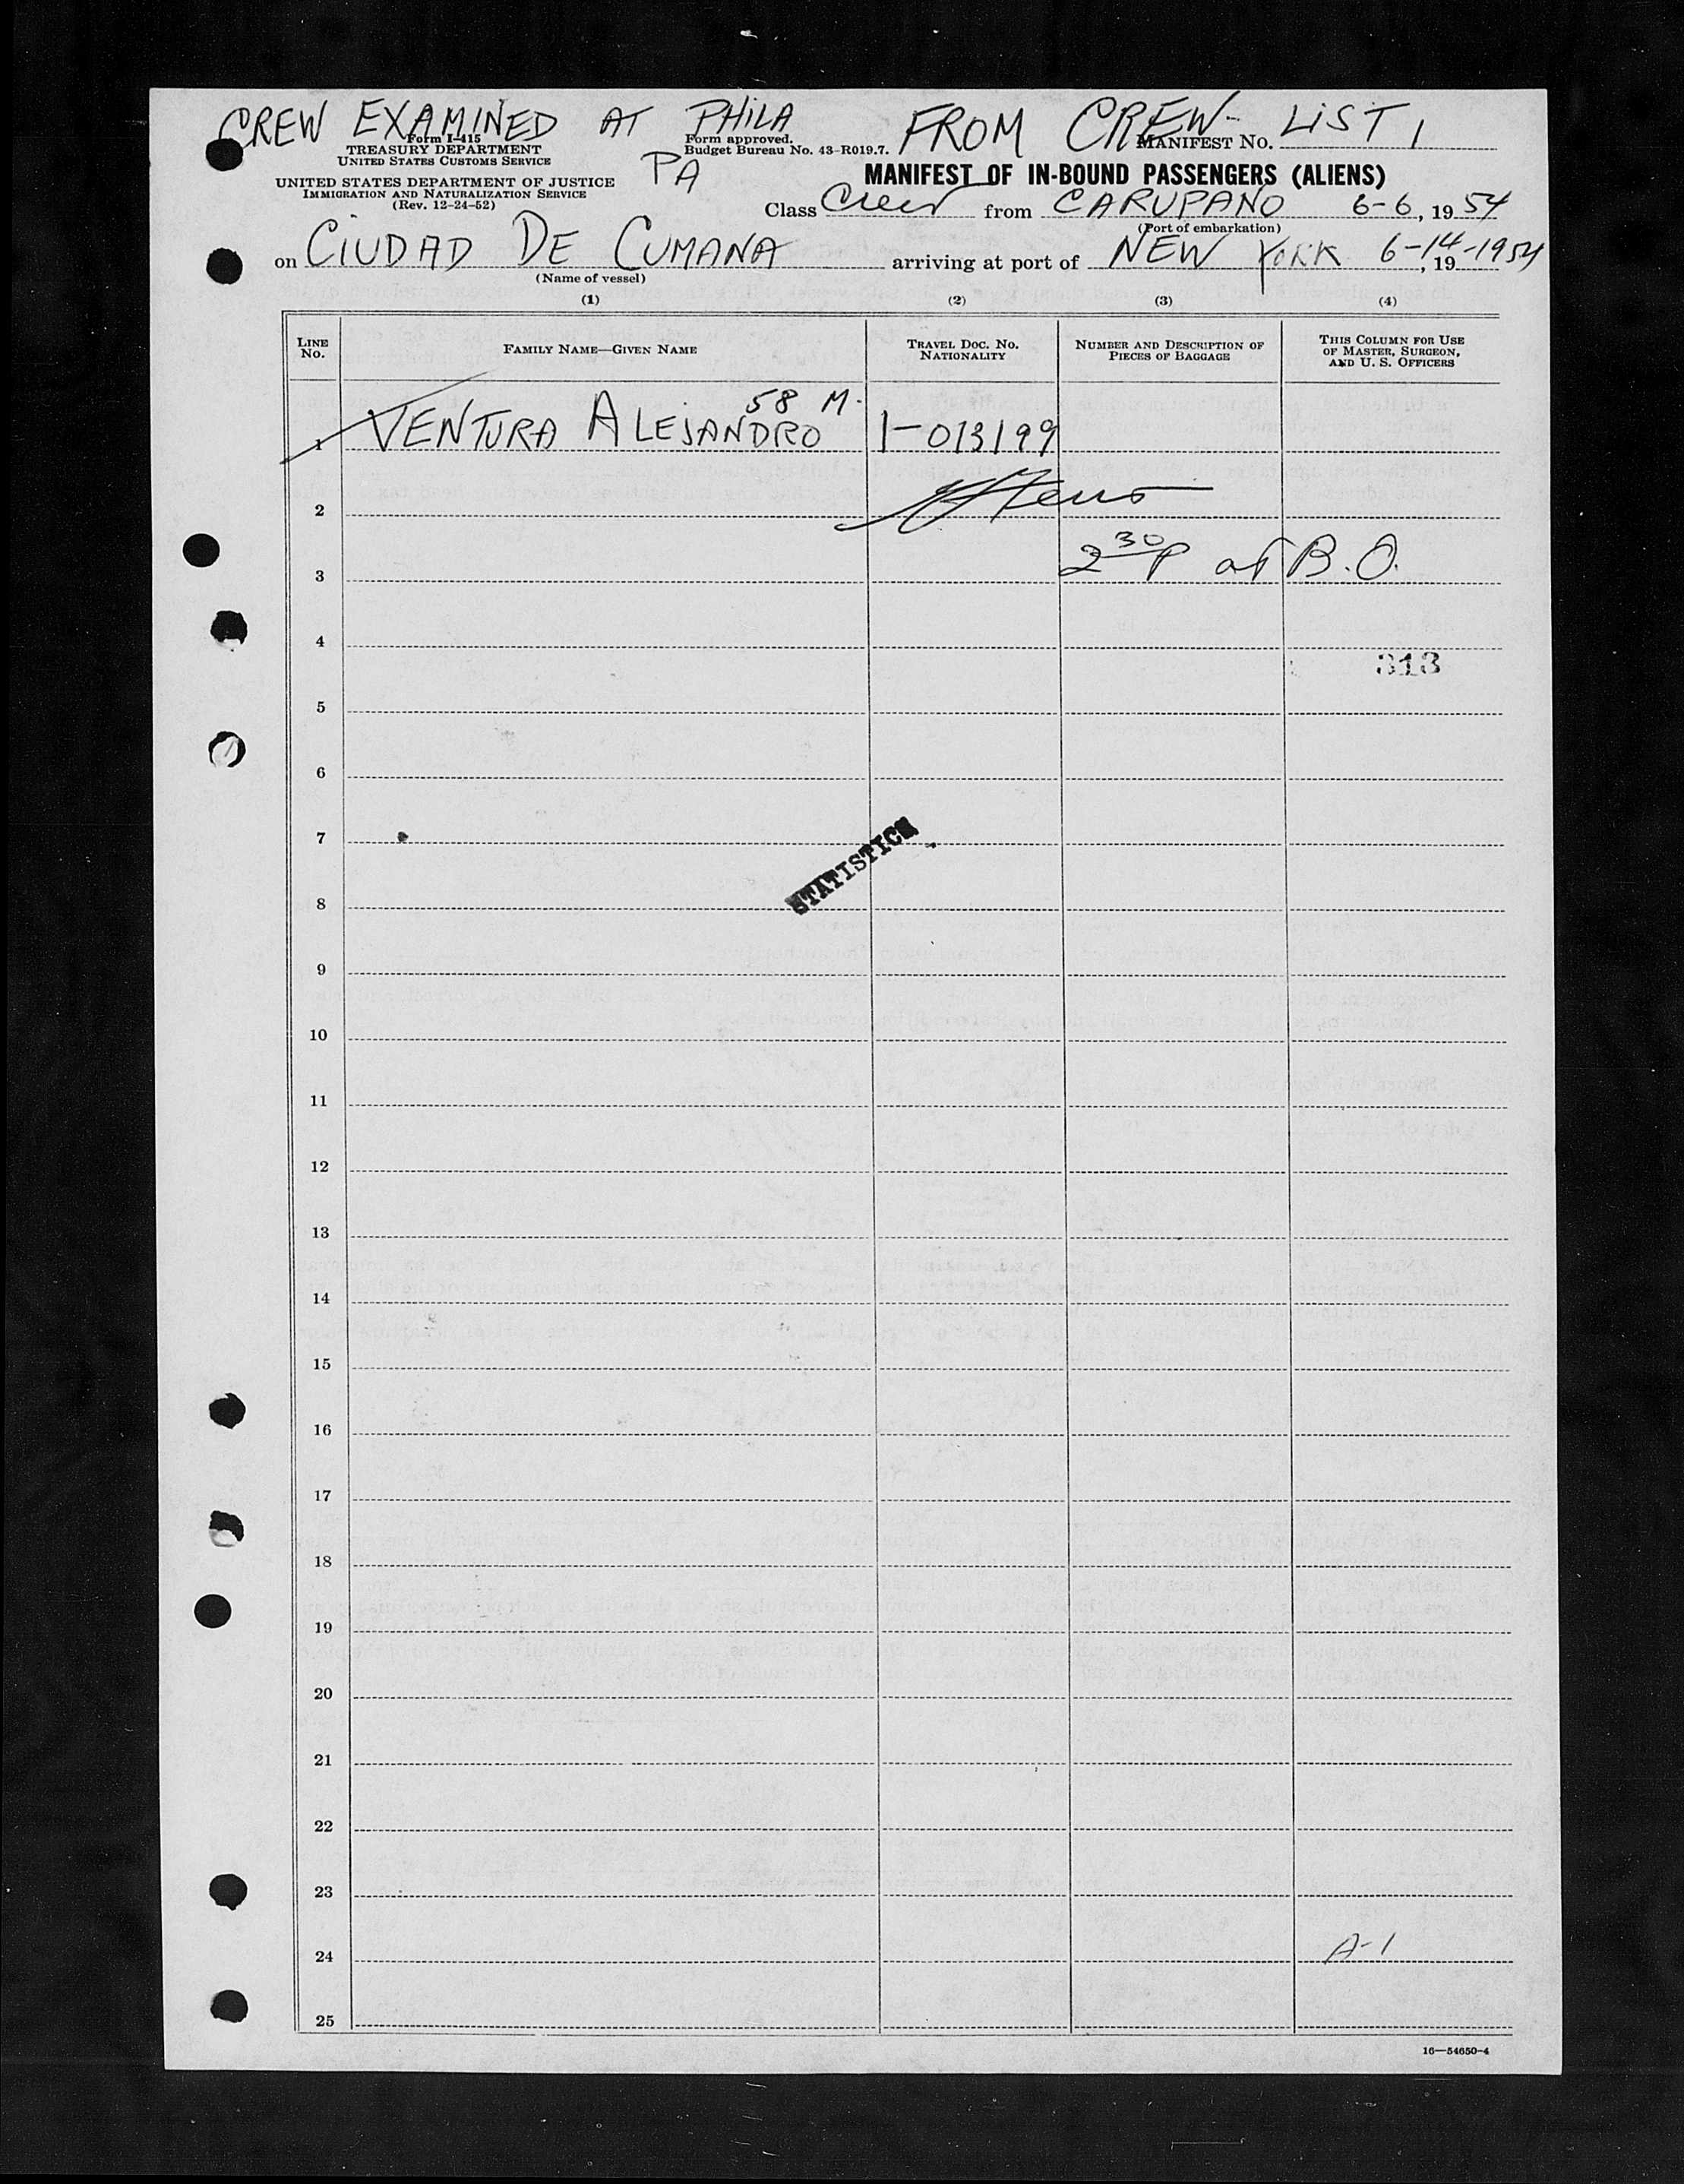 CREW EXAMINED AT PHILA PA
FROM CREW- LIST 1
Form I-415
TREASURY DEPARTMENT
UNITED STATES CUSTOMS SERVICE
Form approved.
Budget Bureau No. 43-R019.7.
MANIFEST NO.
UNITED STATES DEPARTMENT OF JUSTICE
IMMIGRATION AND NATURALIZATION SERVICE
(Rev. 12-24-52)
MANIFEST OF IN-BOUND PASSENGERS (ALIENS)
Class Crew from CARUPANO 6-6, 1954
(Port of embarkation)
on CIUDAD DE CUMANA arriving at port of NEW YORK 6-14-1954, 19
(Name of vessel)
(1) (2) (3) (4)
LINE NO.
FAMILY NAME—GIVEN NAME
TRAVEL DOC. NO. NATIONALITY
NUMBER AND DESCRIPTION OF PIECES OF BAGGAGE
THIS COLUMN FOR USE OF MASTER, SURGEON, AND U. S. OFFICERS
58 M.
1 VENTURA ALEJANDRO 1-013199
2
3 2 30 P at B.O.
4
313
5
6
7
STATISTICS
8
9
10
11
12
13
14
15
16
17
18
19
20
21
22
23
24 A-1
25
16—54650-4